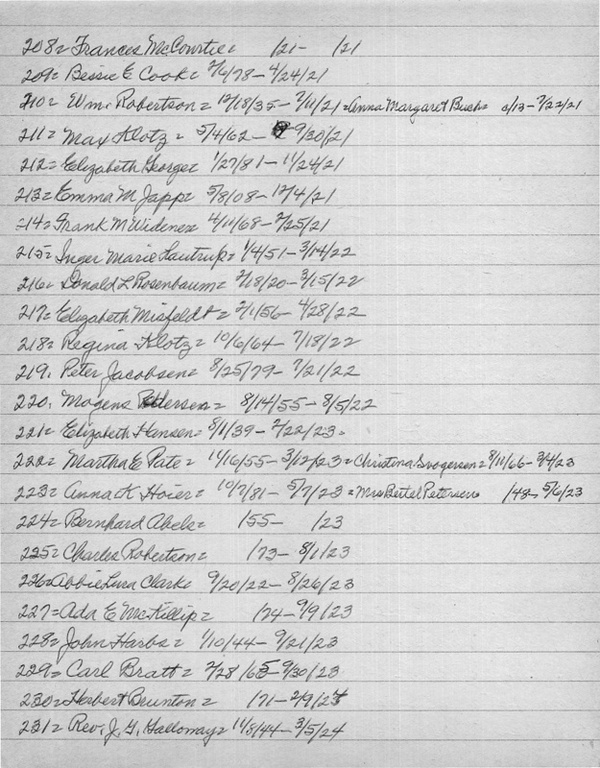 208= Frances McCourtie= /21- /21
209= Bessie E Cook= 2/6/78-4/24/21
210= Wm. Robertson= 12/18/35-7/11/21=Anna Margaret Bush= 2/13-7/22/21
211= Max Klotz= 5/4/62- 9/30/21
212= Elizabeth George= 1/27/81-11/24/21
213= Emma M Japp= 5/8/08-12/4/21
214= Frank M Widener= 4/11/68-2/25/21
215= Inger Marie Lautrup= 1/4/51-3/14/22
216= Donald L Rosenbaum= 2/18/20-3/15/22
217= Elizabeth Misfeldt= 2/1/56-4/28/22
218= Regina Klotz= 10/6/64-7/18/22
219. Peter Jacobsen= 8/25/79-7/21/22
220. Mogens Petersen= 8/14/55-8/5/22
221= Elizabeth Hansen= 8/1/39-2/22/23=
222= Martha E Pate= 11/16/55-3/12/23=Christina Svogersen=8/11/66-3/4/23
223= Anna K Hoier= 10/7/81-5/7/23=Mrs Bertel Petersen /48-5/6/23
224= Bernhard Abels= /55- /23
225= Charles Robertson= /73-8/1/23
226= Abbie Lura Clark= 9/20/22-8/26/23
227= Ada E McKillip= /74-9/9/23
228= John Harbs= 1/10/44-9/21/23
229= Carl Bratt= 2/28/65-9/30/23
230= Herbert Brunton= /71-2/9/23
231= Rev. J. G. Galloway= 11/8/44-3/5/24